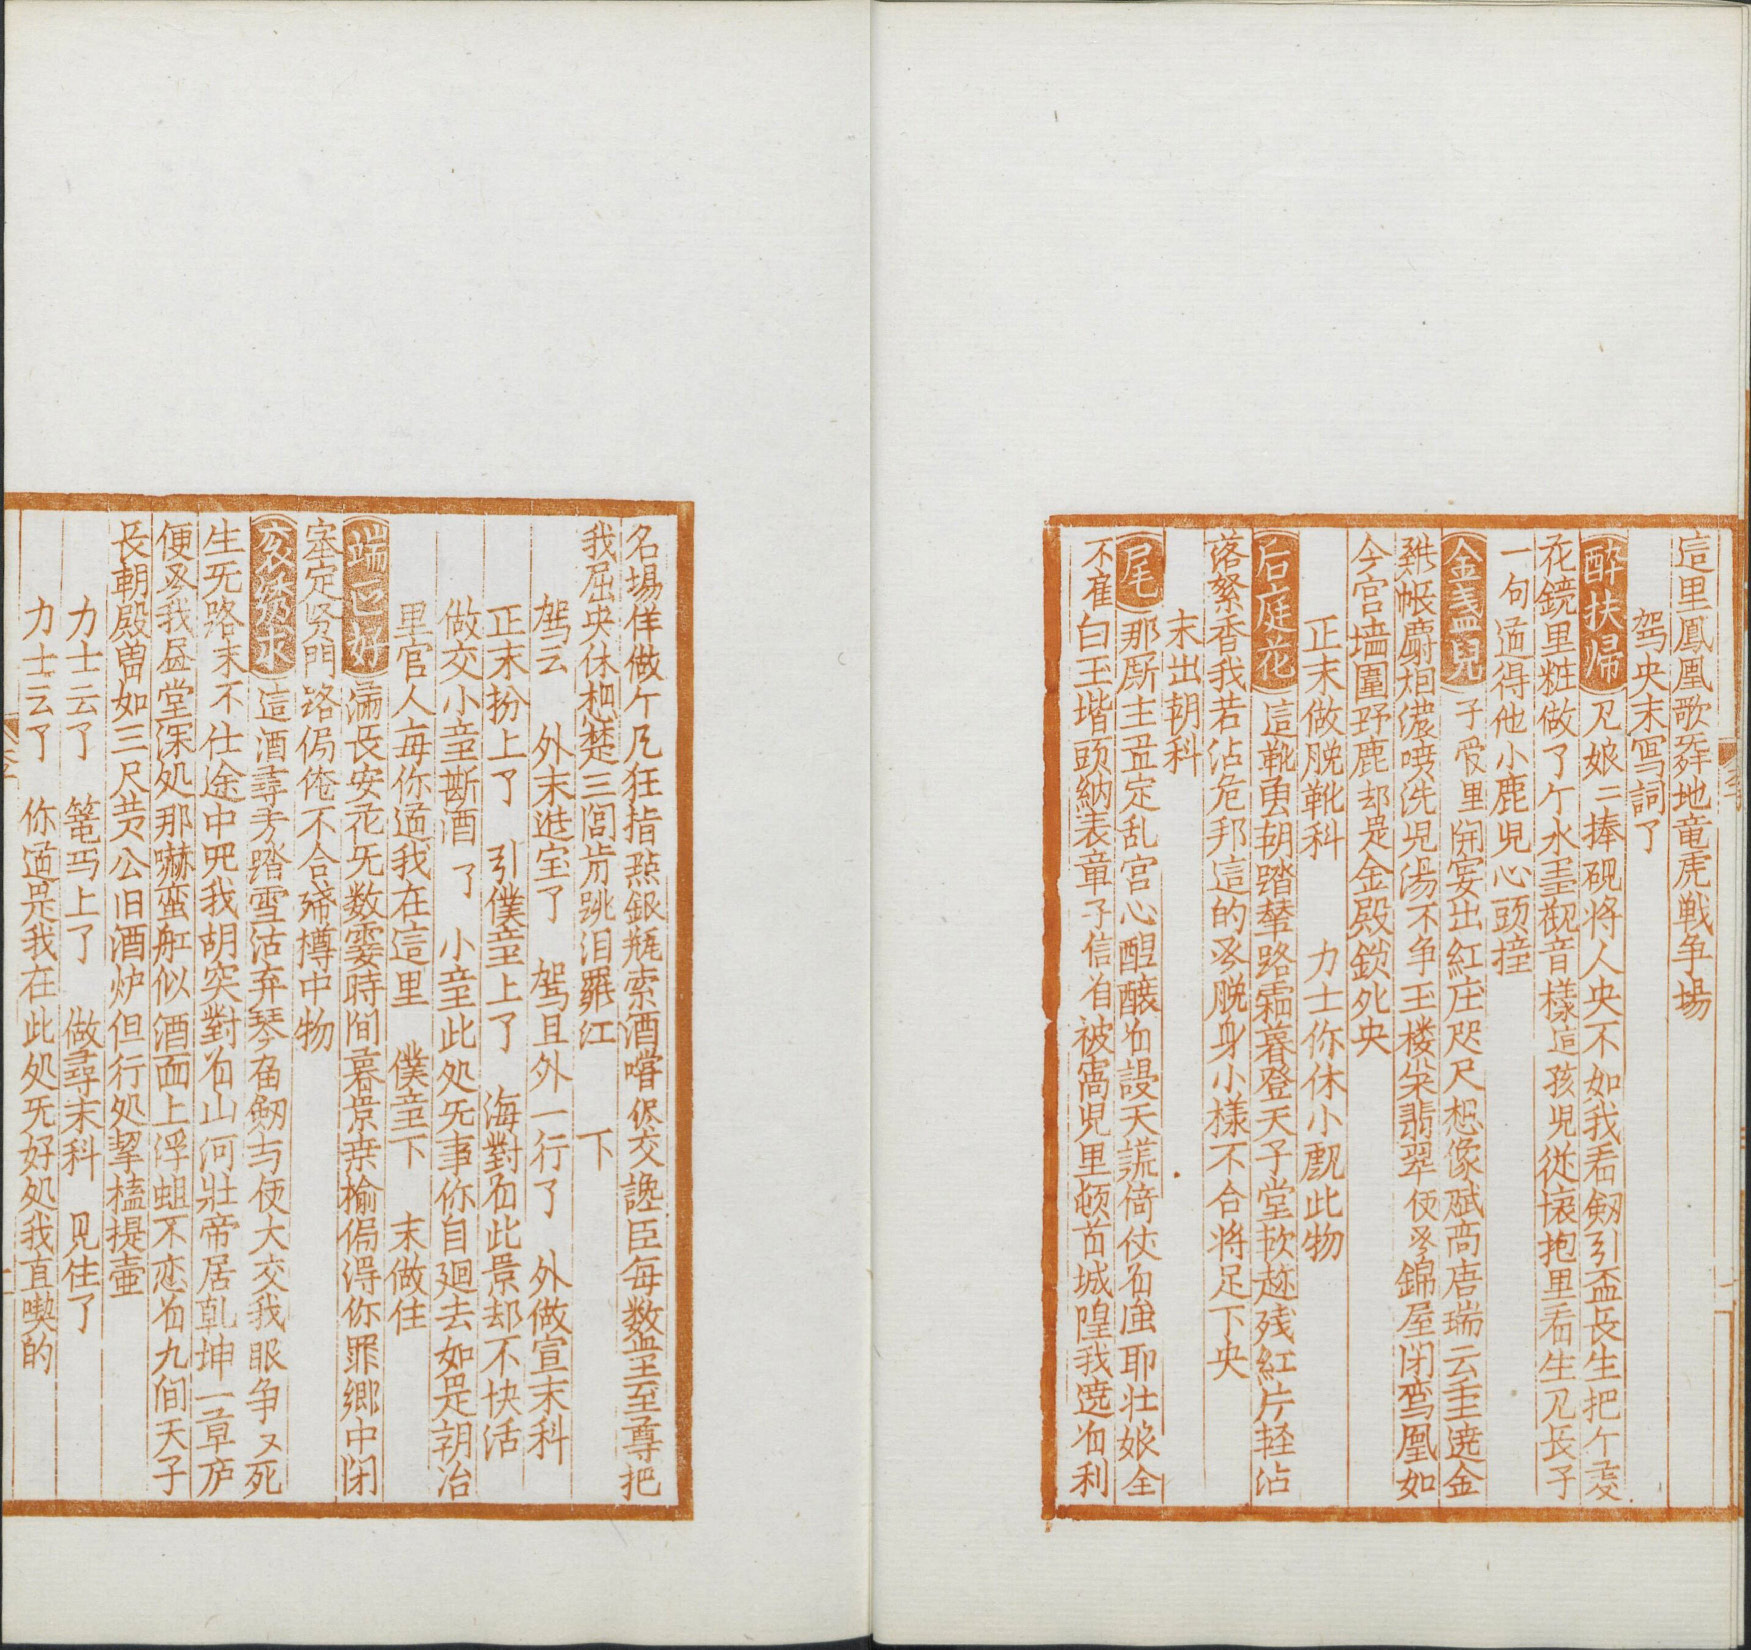 這里鳳凰歌舞地竜虎戦争場
駕央末寫詞了
醉扶帰 见娘〻捧硯将人央不如我看劔引盃長生把个
花鏡里粧做了个水墨观音樣這孩兒従懐抱里看生见長子
一句道得他小鹿兒心頭撞
金盞兒 子受里開宴出紅庄咫尺想像賦高唐瑞云重遶金
帳麝烟濃噴洗兒湯不争玉楼巢翡翠便是錦屋閉鸞凰如
今宫墙圍野鹿却是金殿鎖死央
正末做脱靴科 力士你休小觑此物
后庭花 這靴曽朝踏輦路霜暮登天子堂軟趂残紅片轻沾
落絮香我若沾危邦這的是脱身小樣不合将足下央
末出朝科
尾 那厮主置定乱宫心醖釀着謾天謊倚仗着強耶壮娘全
不雇白玉堦頭納表章子信着被窩兒里頓首城隍我遶着利
名場佯做个风狂指點銀瓶索酒嚐侭交讒臣每数量至至尊把
我屈央休想楚三閭肯跳汨羅江 下
駕云 外末逛宝了 駕且外一行了 外做宣末科
正末扮上了 引僕童上了 海對着此景却不快活
做交小童斟酒了 小童此处旡事你自廻去如是朝冶
里官人每你道我在這里 僕童下 末做住
端正好 滿長安花旡数霎時间暮景桒榆侷得你罪郷中闭
塞定贤門路侷俺不合殢樽中物
衮綉求 這酒尋芳踏雪沽弃琴留劔与便大交我眼争〻死
生旡路末不仕途中咒我胡突對着山河壯帝居乹坤一草庐
便是我畵堂深处那嚇蛮舡似酒面上浮蛆不恋着九间天子
長朝殿曽如三尺黄公旧酒炉但行处挈榼提壷
力士云了 篭马上了 做尋末科 见住了
力士云了 你道是我在此处旡好处我直喫的